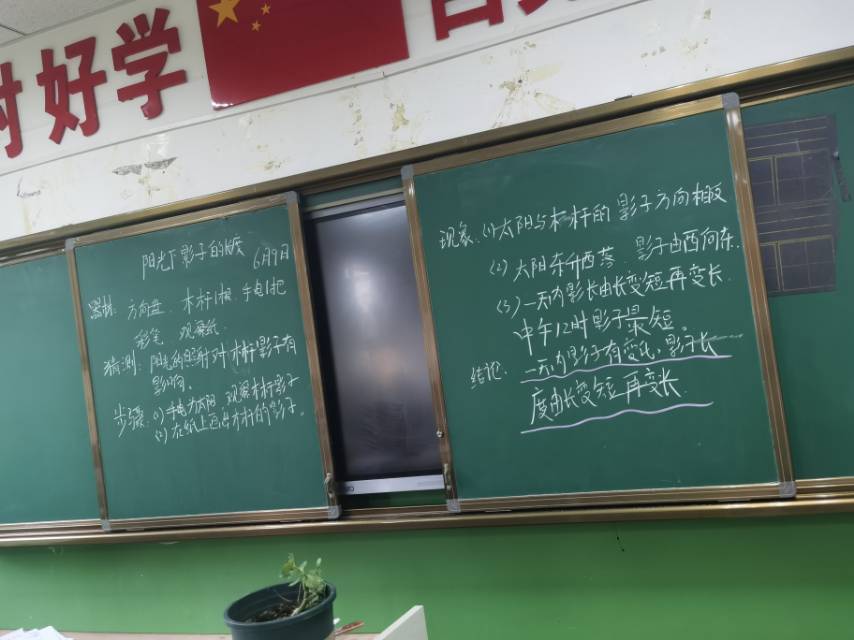 好学
阳光下影子的长度 6月9日
器材: 方向盘 木杆1根 手电1把
彩笔 观察纸
猜测: 阳光的照射对木杆影子有
影响。
步骤: (1) 手电为太阳 观察木杆影子
(2) 在纸上画出木杆的影子。
现象: (1) 太阳与木杆的影子方向相反
(2) 太阳东升西落 影子由西向东.
(3) 一天内影长由长变短再变长.
中午12时影子最短。
结论: 一天内影子有变化, 影子长
度由长变短再变长.